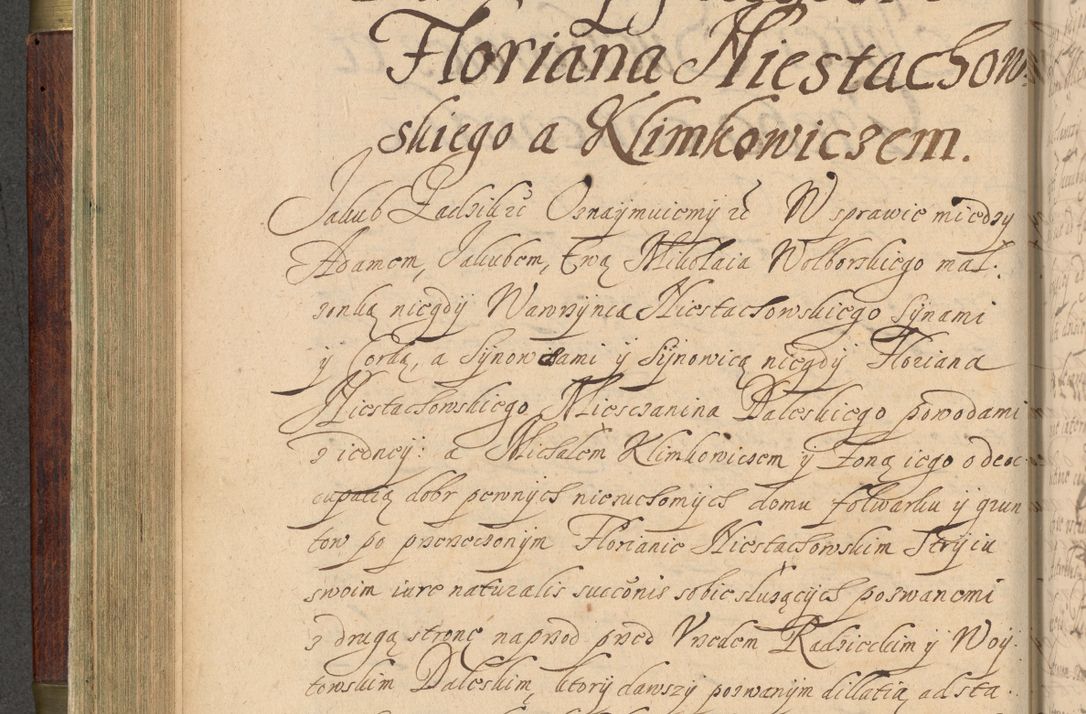 Floriana Niestachow-
skiego a Klimkowiczem.
Jakub Zadzik etc Oznaymuiemy iż W sprawie miedzy
Adamem, Jakubem, Ewą Mikołaia Wolborskiego mał-
zonką niegdy Wawrzynca Niestachowskiego Synami
y Cordą, a Synowcami y Synowicą niegdy Floriana
Niestachowskiego Miesczanina Daleskiego powodami
z iedney: a Michałem Klimkowiczem y żoną iego o deoc-
cupatią dobr pewnych nieruchomych domu folwarku y grun
tow po przerzeczonym Florianie Niestachowskim Stryiu
swoim iure naturalis succōnis sobie służących pozwanemi
z drugą stronę naprzod przed Vrzedem Radzieckim y Woy-
towskim Daleskim, ktory dawszy pozwanym dillatią ad sta-